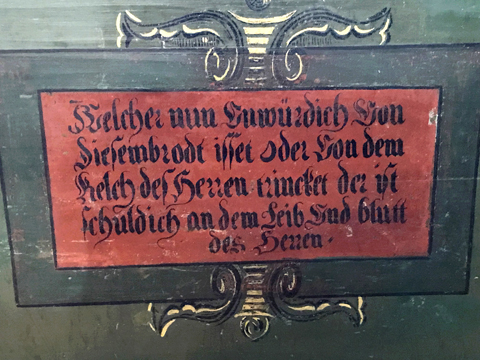 Welcher nun Unwürdich Von
Diesembrodt isset oder Von dem
Kelch des Herren trincket der ist
schuldich an dem Leib Und blutt
des Herren.